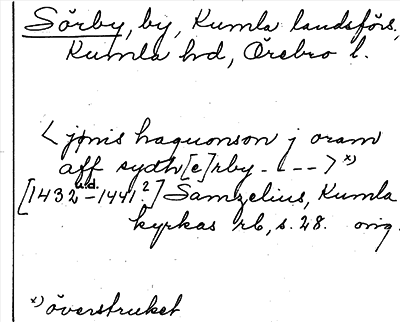 Sörby, by, Kumla landsförs.,
Kumla hd, Örebro l.
< jønis haquonson j oram
aff sydh[e]rby - - - - > x)
[1432 u.d. - 1441?] Samzelius, Kumla
kyrkas rb, s. 28. orig.
x) överstruket